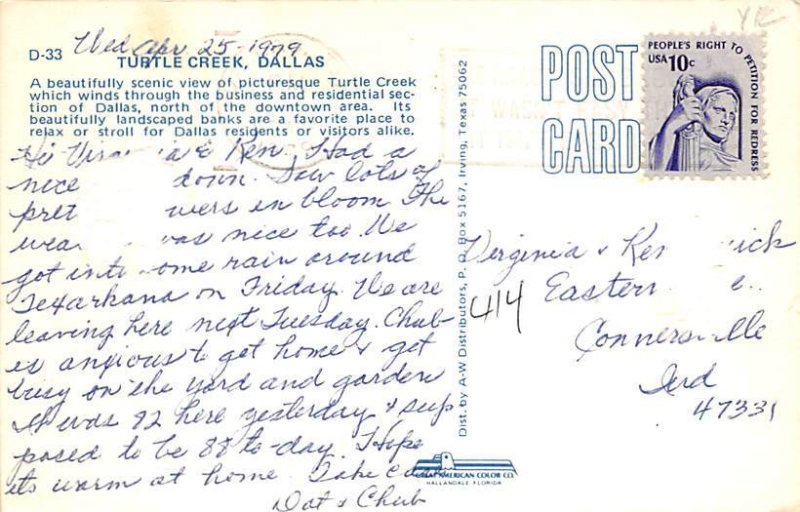 Wed Apr 25-1979
D-33
TURTLE CREEK, DALLAS
A beautifully scenic view of picturesque Turtle Creek
which winds through the business and residential sec-
tion of Dallas, north of the downtown area. Its
beautifully landscaped banks are a favorite place to
relax or stroll for Dallas residents or visitors alike.
Hi Virginia & Ken. Had a
nice down. Saw lots of
pret wers in bloom The
wea was nice too. We
got into some rain around
Texarkana on Friday. We are
leaving here next Tuesday. Chub
is anxious to get home & get
busy on the yard and garden
It was 82 here yesterday & sup
posed to be 88 to-day. Hope
its warm at home. Take care
Dot & Chub
GREAT AMERICAN COLOR CO.
HALLANDALE FLORIDA
Dist. by A-W Distributors, P. O. Box 5167, Irving, Texas 75062
POST
CARD
PEOPLE'S RIGHT TO PETITION FOR REDRESS
USA 10c
Virginia & Ken ick
414 Eastern
Connersville
Ind
47331